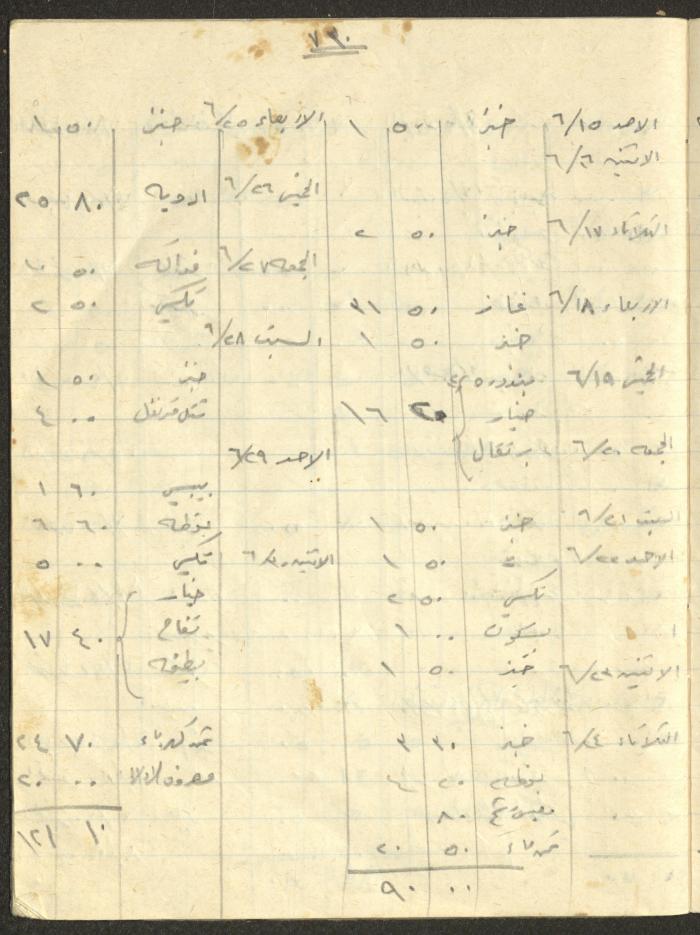 ٧٩٠
الاحد ٦/١٥ خبز ٥٠ ١
الاثنين ٦/١٦
الثلاثاء ٦/١٧ خبز ٥٠ ٢
الاربعاء ٦/١٨ غاز ٥٠ ٣١
خبز ٥٠ ١
الخميس ٦/١٩ بندوره
خيار ٢٥ ١٦
الجمعه ٦/٢٠ برتقال
السبت ٦/٢١ خبز ٥٠ ١
الاحد ٦/٢٢ ٥٠ ١
تكسي ٥٠ ٢
بسكوت ٠٠ ١
الاثنين ٦/٢٣ خبز ٥٠ ١
الثلاثاء ٦/٢٤ خبز ٣٠ ٣
بوظه ٢٠ ٤
٨٠
كهرباء ٥٠ ٢٠
٠٠ ٩٠
الاربعاء ٦/٢٥ خبز ٥٠ ١
الخميس ٦/٢٦ ادويه ٨٠ ٢٥
الجمعه ٦/٢٧ فواكه ٥٠ ١٠
تكسي ٥٠ ٢
السبت ٦/٢٨
خبز ٥٠ ١
٠٠ ٤
الاحد ٦/٢٩
بيبسي ٦٠ ١
بوظه ٦٠ ٦
الاثنين ٦/٣٠ تكسي ٠٠ ٥
خيار
تفاح ٤٠ ١٧
بطيخه
ثمن كهرباء ٧٠ ٢٤
مصروف ٠٠ ٢٠
١٠ ١٢١